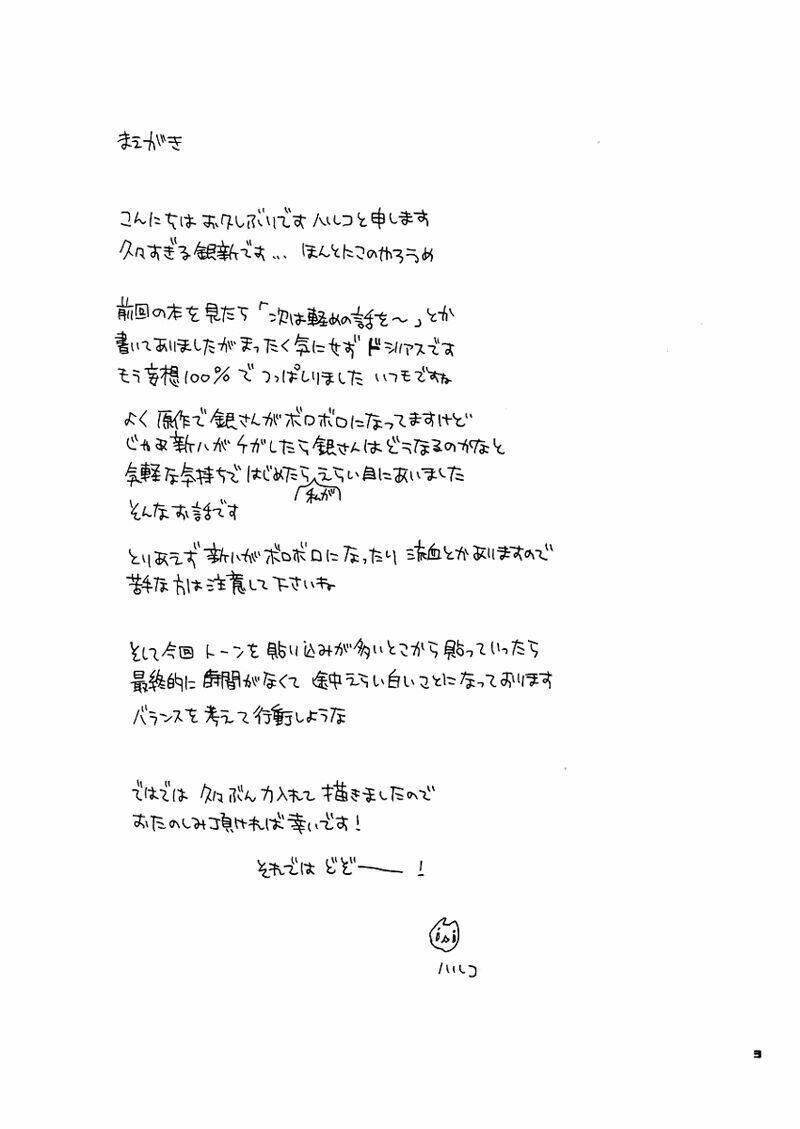 まえがき
こんにちは お久しぶりです ハルコと申します
久々すぎる銀新です... ほんとにこのやろうめ
前回の本を見たら「次は軽めの話を〜」とか
書いてありましたがまったく気にせず ドシリアスです
もう妄想100%で つっぱしりました いつもですね
よく原作で銀さんがボロボロになってますけど
じゃあ新八がケガしたら銀さんはどうなるのかなと
気軽な気持ちではじめたらえらい目にあいました
(私が)
そんなお話です
とりあえず新八がボロボロになったり 流血とかありますので
苦手な方は注意して下さいね
そして今回 トーンを貼り込みが多いとこから貼っていったら
最終的に時間がなくて 途中えらい白いことになっております
バランスを考えて行動しような
ではでは 久々ぶん力入れて描きましたので
おたのしみ頂ければ幸いです!
それでは どぞー!
ハルコ
9